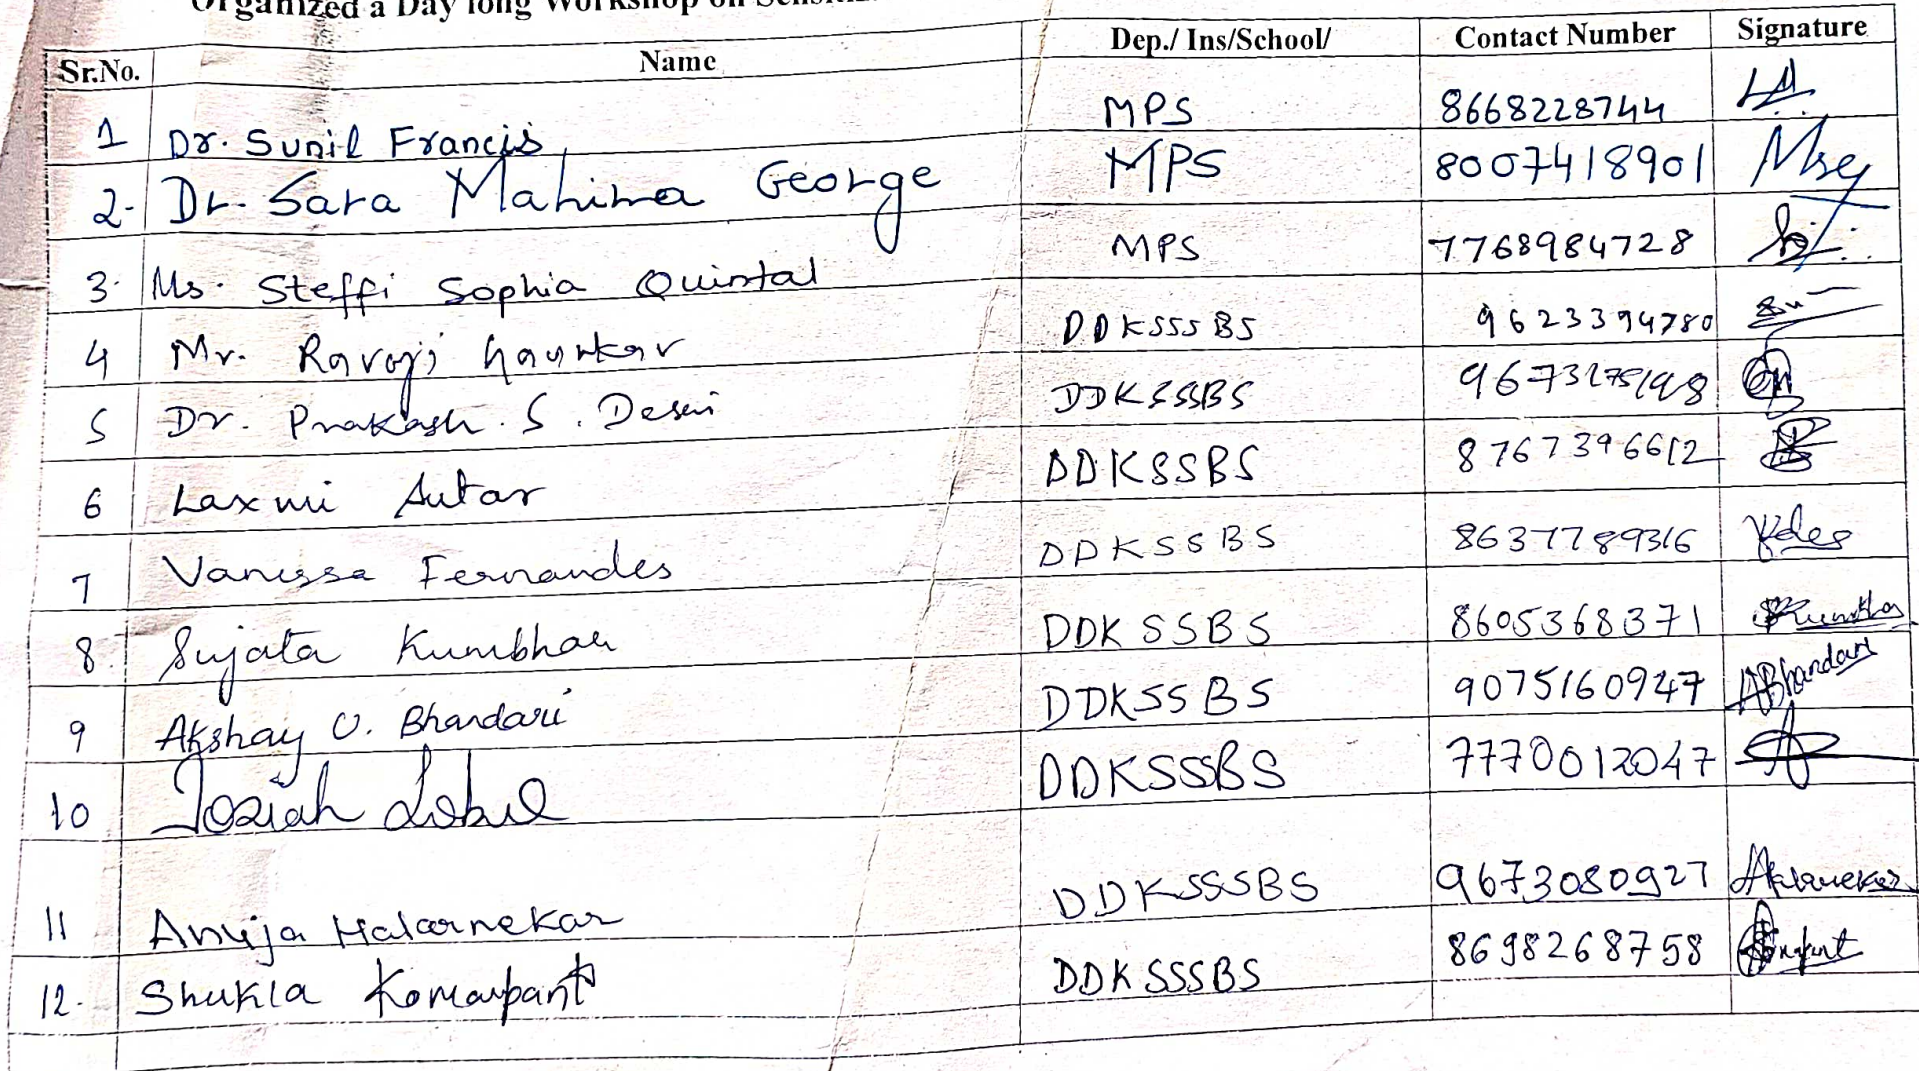 Organized a Day long Workshop on
Sr.No. Name Dep./ Ins/School/ Contact Number Signature
1 Dr. Sunil Francis MPS 8668228744
2. Dr. Sara Mahima George MPS 8007418901
3. Ms. Steffi Sophia Quintal MPS 7768984728
4 Mr. Ravoji DDKSSSBS 9623394780
5 Dr. Prakash. S. Desai DDKSSSBS
6 Laxmi Autar DDKSSBS 8767396612
7 Vanessa Fernandes DDKSSBS 8637789316
8. Sujata Kumbhar DDKSSBS 8605368371
9 Akshay U. Bhandari DDKSSBS 9075160947 ABhandari
10 Josiah DDKSSSBS 7770012047
11 Anuja Halarnekar DDKSSSBS 9673080927
12. Shukla Komarpant DDKSSSBS 8698268758